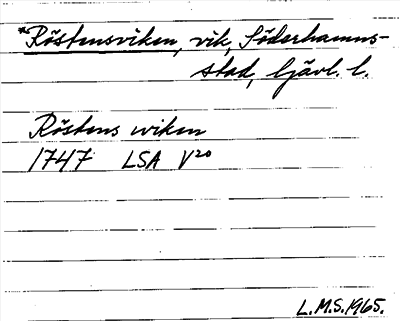 *Röstensviken, vik, Söderhamns-
stad, Gävl. l.
Röstens wiken
1747 LSA V20
L.M.S.1965.